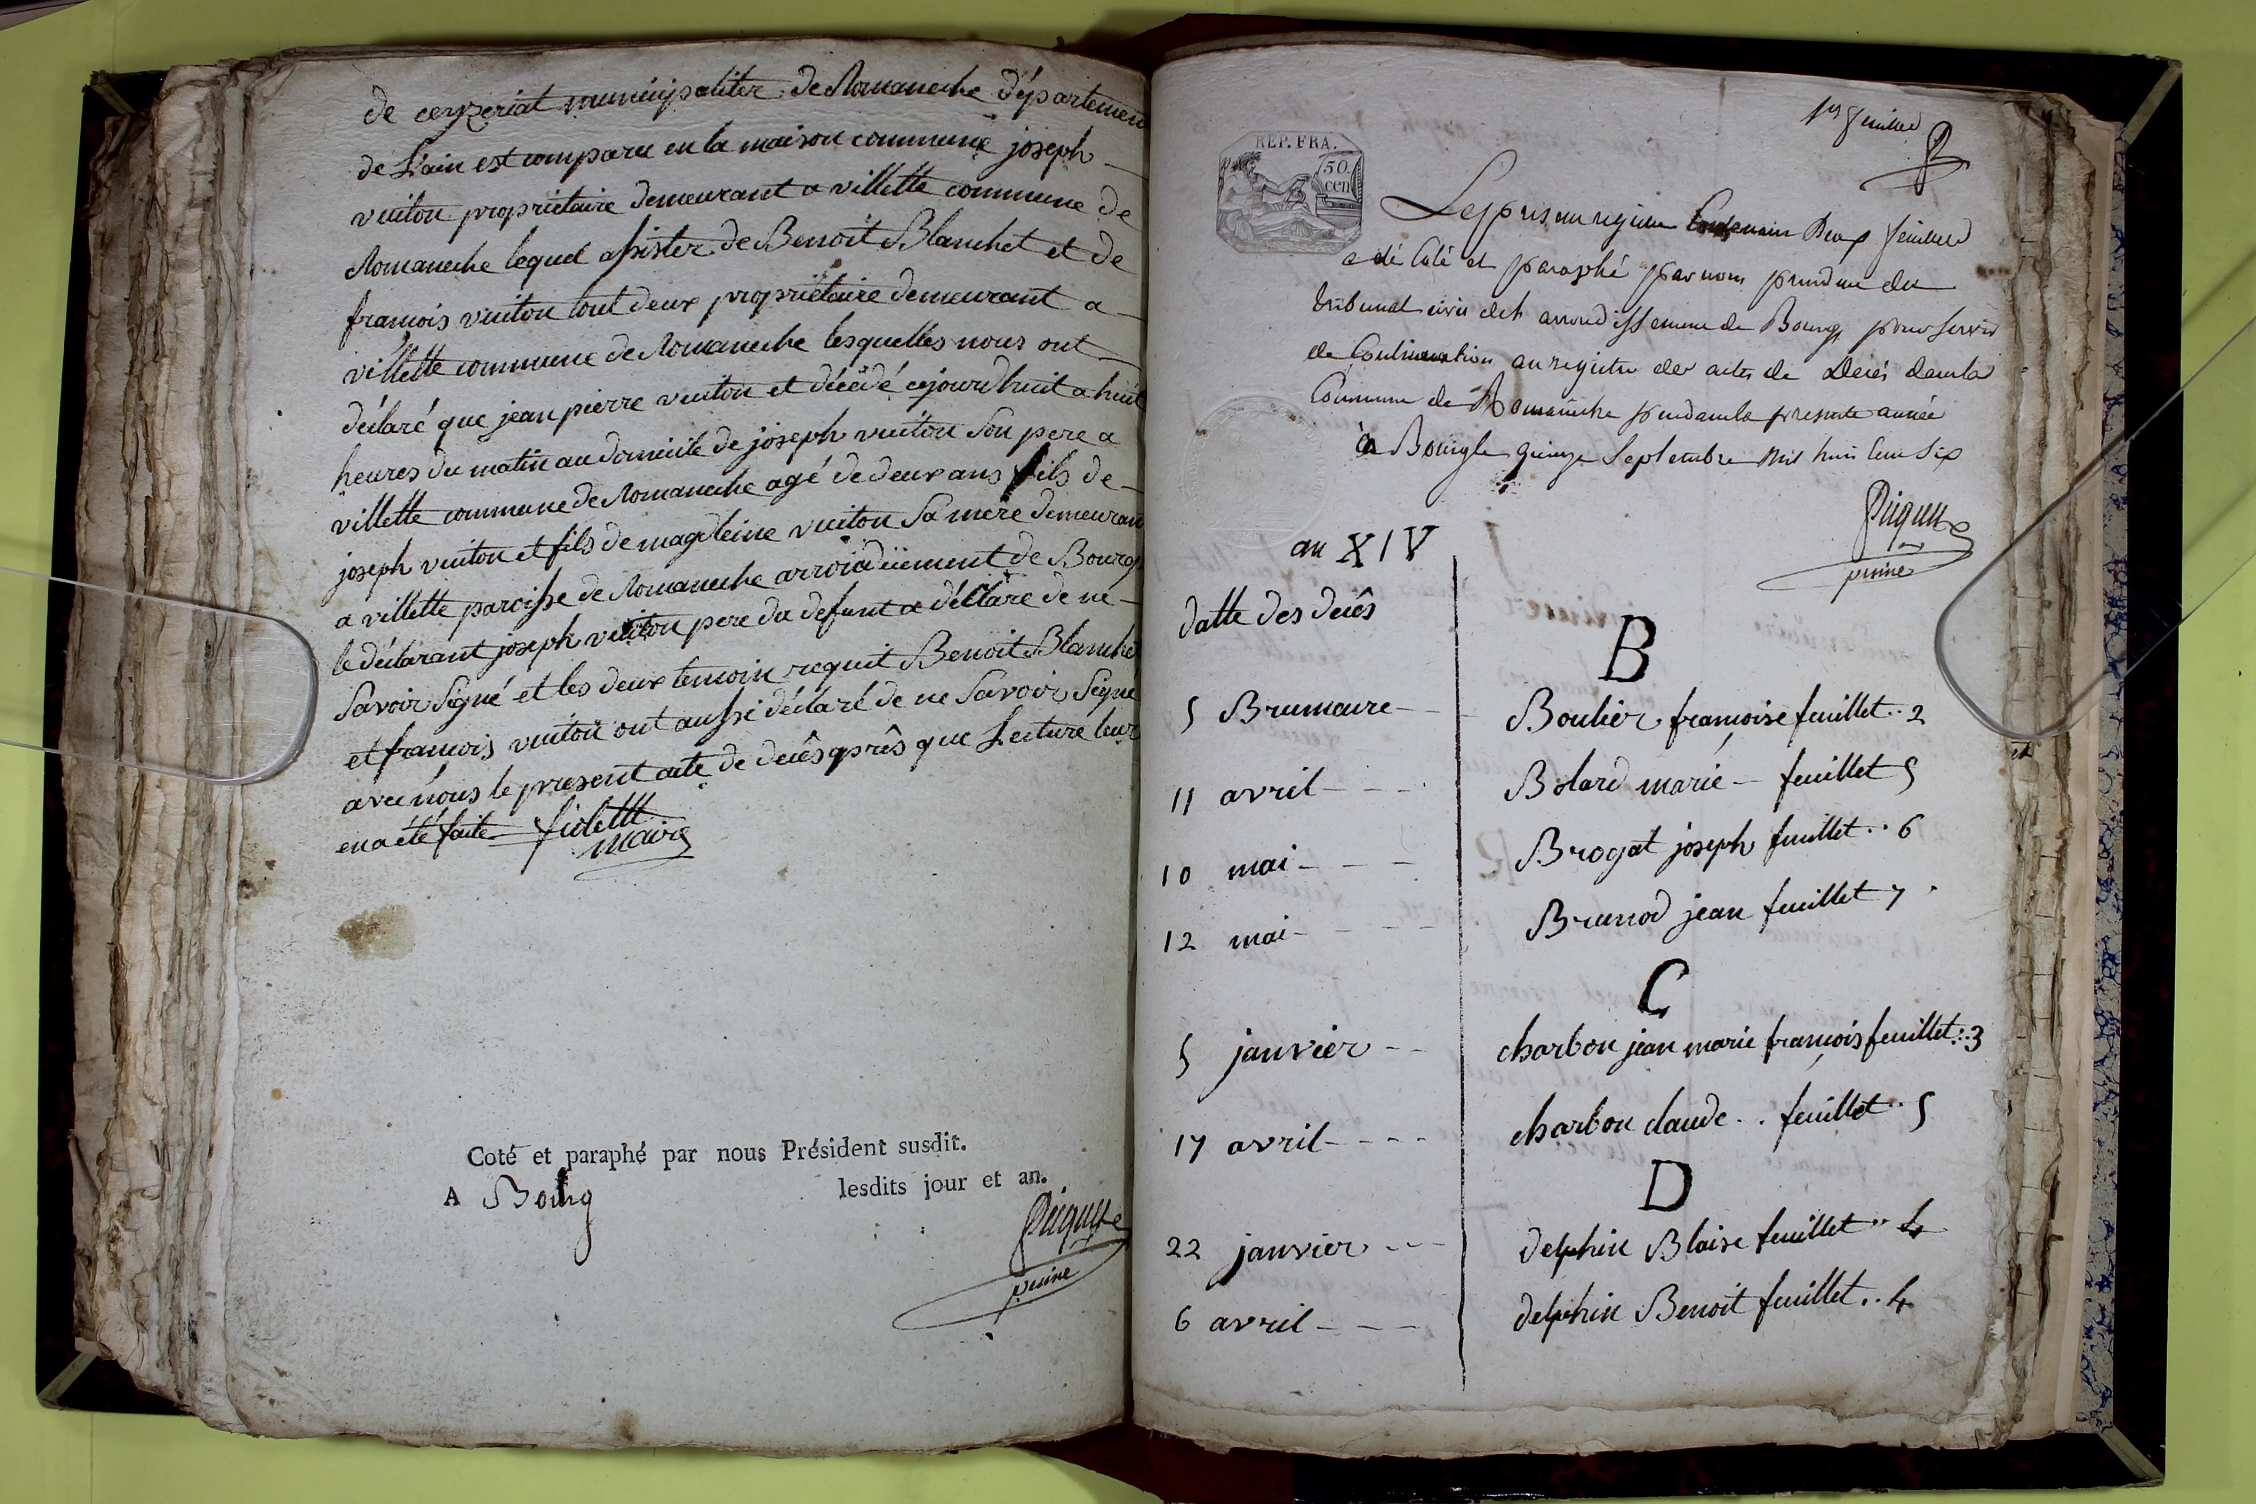 de ceyzeriat municipaliter de Romaneche département
de L'ain est comparu en la maison commune joseph
vuiton propriétaire demeurant a villette commune de
Romaneche lequel assister de Benoit Blanchet et de
françois vuiton tout deux propriétaire demeurant a
villette commune de Romaneche lesquelles nous ont
déclaré que jean pierre vuiton et décédé cejourdhuit a huit
heures du matin au domicile de joseph vuiton Son pere a
villette commune de Romaneche agé de deux ans fils de
joseph vuiton et fils de magdeleine vuiton Sa mere demeurant
a villette paroisse de Romaneche arroidiiement de Bourg
le déclarant joseph vuiton pere du defunt a déclaré de ne
Savoir Signé et les deux temoin requit Benoit Blanchet
et françois vuiton ont aussi déclaré de ne Savoir Signé
avec nous le present acte de decês aprês que Lecture leur
en a été faite
maire
Coté et paraphé par nous Président susdit.
A Bourg lesdits jour et an.
Piquet
1er feuillet
REP. FRA.
50.
cen
Le present registre Contenant Deux feuillets
a été Coté et paraphé par nous president du
tribunal civil de l'arrondissement de Bourg pour Servir
de Continuation au registre des actes de Décés dans la
Commune de Romaneche pendant la presente année
à Bourg le quinze Septembre mil huit Cent Six
Piquet
an XIV
datte des decês
B
5 Brumaire - - Boulier françoise feuillet .. 2
11 avril - - - Bolard marié - feuillet 5
10 mai - - - Brogat joseph feuillet .. 6
12 mai - - - - Brunod jean feuillet 7
C
5 janvier - - charbon jean marie françois feuillet .. 3
17 avril - - - - charbon claude .. feuillet .. 5
D
22 janvier - - - delphin Blaise feuillet .. 4
6 avril - - - delphin Benoit feuillet .. 4